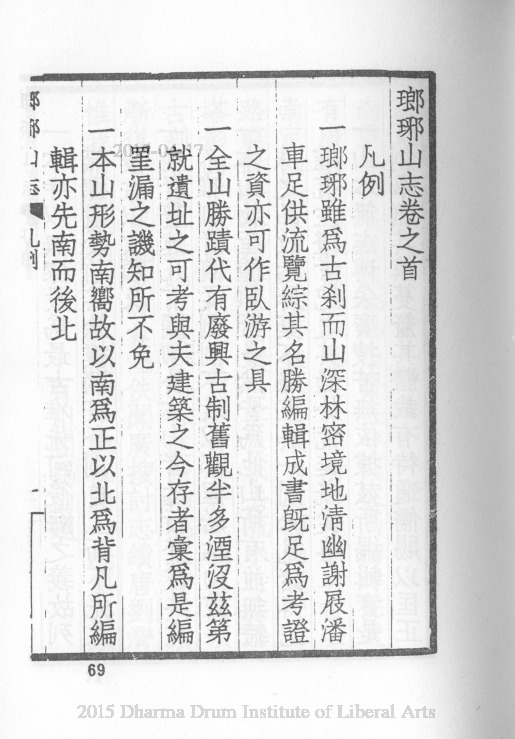 瑯琊山志卷之首
凡例
一瑯琊雖爲古刹而山深林密境地淸幽謝屐潘
車足供流覽綜其名勝編輯成書旣足爲考證
之資亦可作臥游之具
一全山勝蹟代有廢興古制舊觀半多湮沒茲第
就遺址之可考與夫建築之今存者彙爲是編
里漏之譏知所不免
一本山形勢南嚮故以南爲正以北爲背凡所編
輯亦先南而後北
瑯琊山志 凡例
一
69
2015 Dharma Drum Institute of Liberal Arts